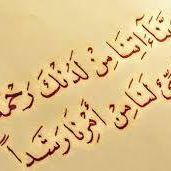 آتِنَا مِنْ لَدُنْكَ
لَنَا مِنْ أَمْرِنَا رَشَداً